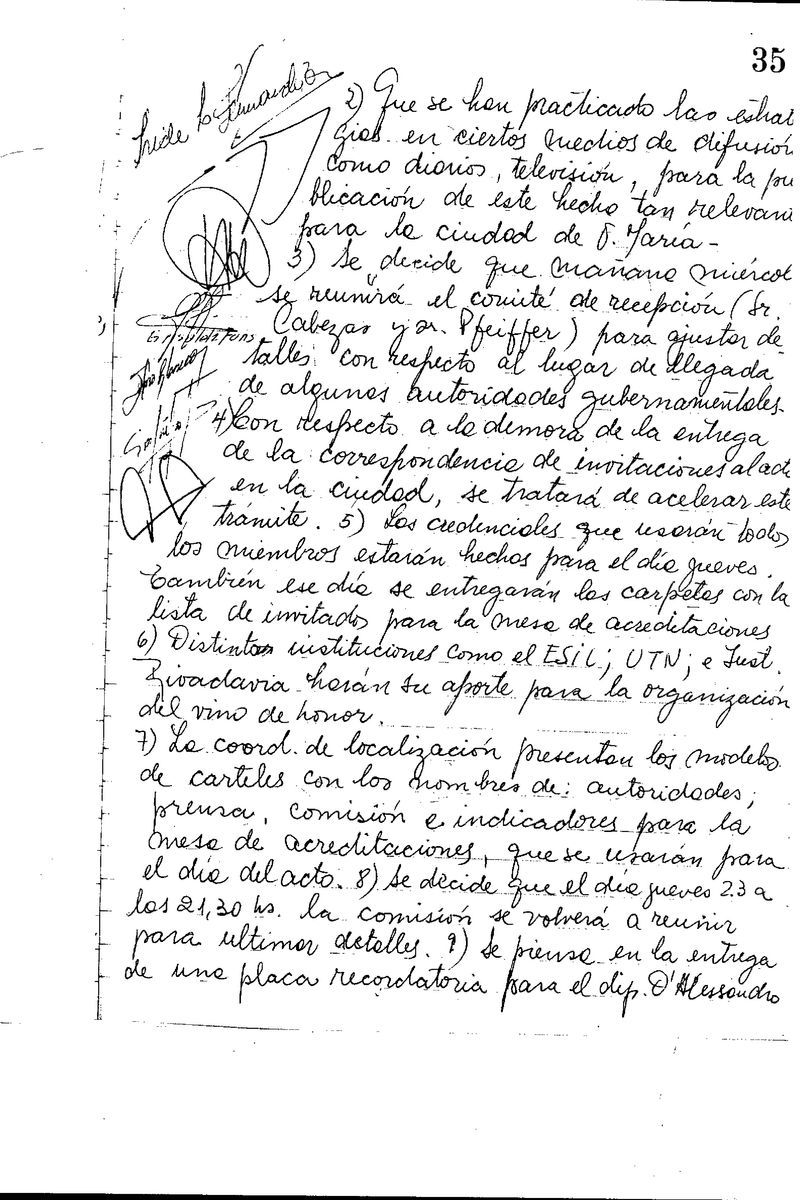 35
2) Que se han practicado las estrat
gias en ciertos medios de difusión
como diarios, televisión, para la pu
blicación de este hecho tan relevan
para la ciudad de V. María -
3) Se decide que mañana miércol
se reunirá el comité de recepción (Sr.
Cabezas y sr. Pfeiffer) para ajustar de
talles con respecto al lugar de llegada
de algunas autoridades gubernamentales.
4) Con respecto a la demora de la entrega
de la correspondencia de invitaciones al act
en la ciudad, se tratará de acelerar este
trámite. 5) Las credenciales que usarán todos
los miembros estarán hechos para el día jueves.
También ese día se entregarán las carpetas con la
lista de invitados para la mesa de acreditaciones
6) Distintas instituciones como el ESIL; UTN; e Inst.
Rivadavia harán su aporte para la organización
del vino de honor.
7) La coord. de localización presentan los modelos
de carteles con los nombres de: autoridades;
prensa, comisión e indicadores para la
mesa de acreditaciones, que se usarán para
el día del acto. 8) Se decide que el día jueves 23 a
las 21,30 hs. la comisión se volverá a reunir
para ultimar detalles. 9) Se piensa en la entrega
de una placa recordatoria para el dip. D'Alessandro